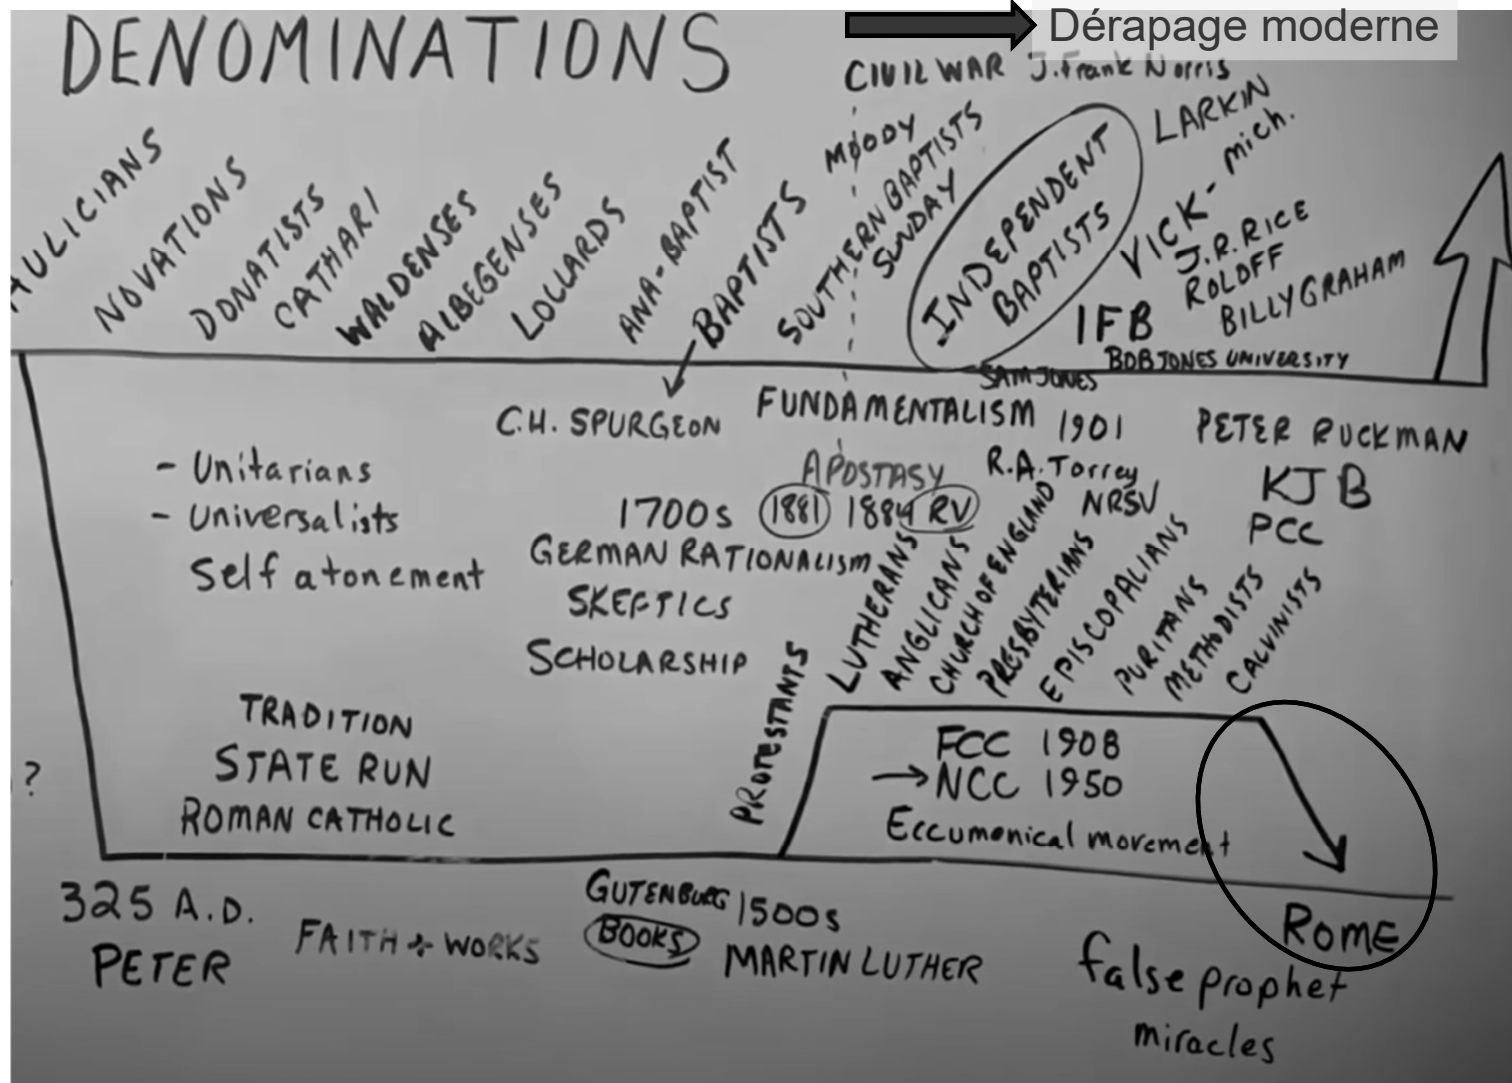 DENOMINATIONS
Dérapage moderne
CIVIL WAR
J. Frank Norris
AULICIANS
NOVATIONS
DONATISTS
CATHARI
WALDENSES
ALBEGENSES
LOLLARDS
ANA-BAPTIST
BAPTISTS
MOODY
SOUTHERN BAPTISTS
SUNDAY
INDEPENDENT
BAPTISTS
LARKIN
VICK - mich.
J.R. RICE
ROLOFF
BILLY GRAHAM
IFB
BOB JONES UNIVERSITY
SAM JONES
C.H. SPURGEON
FUNDAMENTALISM
1901
PETER RUCKMAN
- Unitarians
APOSTASY
R.A. Torrey
KJB
- Universalists
1700s
1881 1884 RV
NRSV
PCC
Self atonement
GERMAN RATIONALISM
SKEPTICS
SCHOLARSHIP
PROTESTANTS
LUTHERANS
ANGLICANS
CHURCH OF ENGLAND
PRESBYTERIANS
EPISCOPALIANS
PURITANS
METHODISTS
CALVINISTS
TRADITION
STATE RUN
ROMAN CATHOLIC
?
FCC 1908
NCC 1950
Eccumenical movement
325 A.D.
PETER
FAITH + WORKS
GUTENBURG
BOOKS
1500s
MARTIN LUTHER
ROME
false prophet
miracles